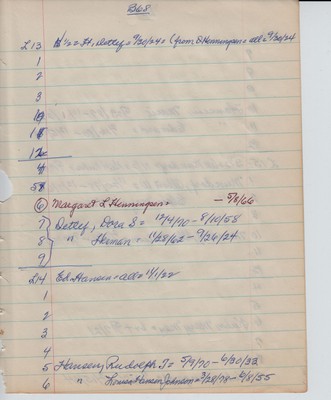 B68
L13 N½ Detlef = 9/30/24 = (from D Henningsen = all = 9/30/24
1
2
3
10
11
12
4
5
6 Margaret L Henningsen = - 5/8/66
7 Detlef, Dora S = 12/4/70 - 8/10/58
8 " Herman = 11/28/62 - 9/26/24
9
L14 Ed Hansen = all = 11/1/22
1
2
3
4
5 Hansen, Rudolph T = 5/9/70 - 6/30/33
6 " Louise Hansen Johnson = 3/28/78 - 6/8/55